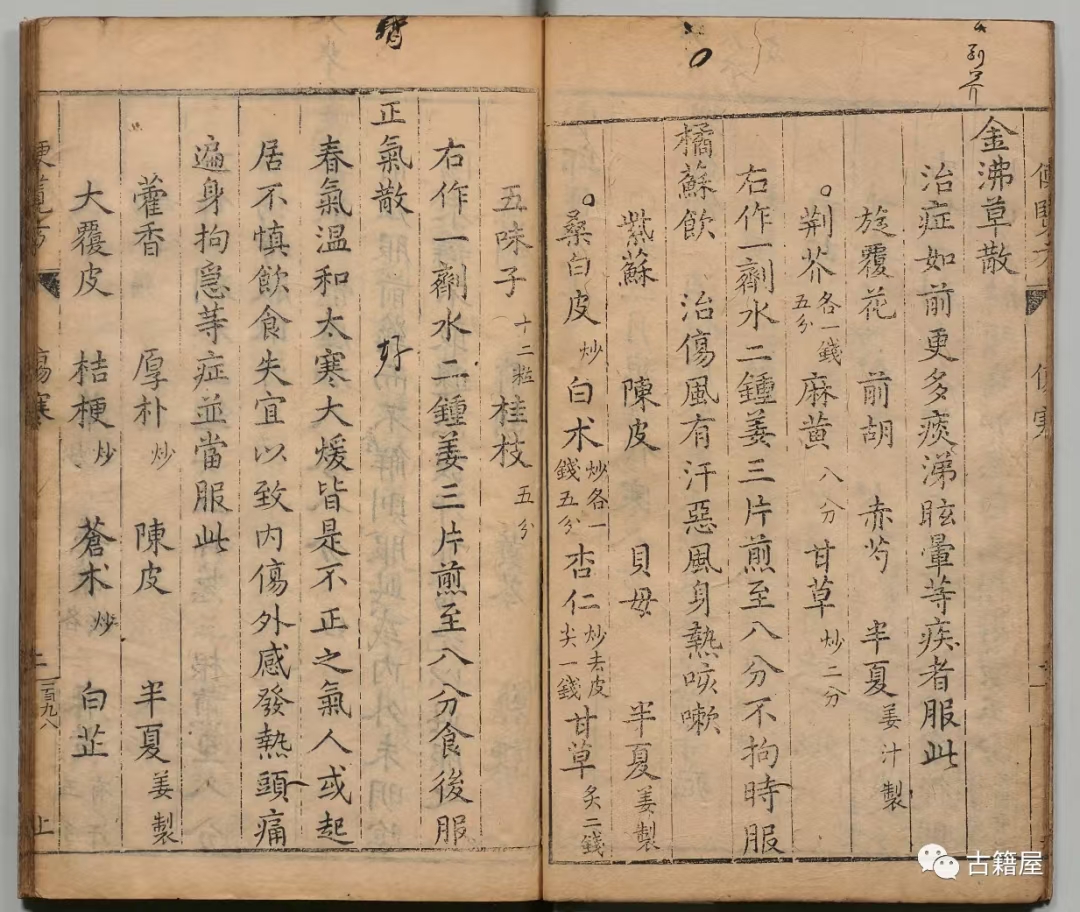 金沸草散
治症如前更多痰涕眩暈等疾者服此
旋覆花 前胡 赤芍 半夏姜汁製
荆芥各一錢五分 麻黄八分 甘草炒二分
右作一劑水二鍾姜三片煎至八分不拘時服
橘蘇飲 治傷風有汗惡風身熱咳嗽
紫蘇 陳皮 貝母 半夏姜製
桑白皮炒 白术炒各一錢五分 杏仁炒去皮尖一錢 甘草炙二錢
五味子十二粒 桂枝五分
右作一劑水二鍾姜三片煎至八分食後服
正氣散
好
春氣溫和太寒大煖皆是不正之氣人或起
居不慎飲食失宜以致内傷外感發熱頭痛
遍身拘急等症並當服此
藿香 厚朴炒 陳皮 半夏姜製
大覆皮 桔梗炒 蒼术炒 白芷
便覽方 傷寒 上 三百九八 上
古籍屋